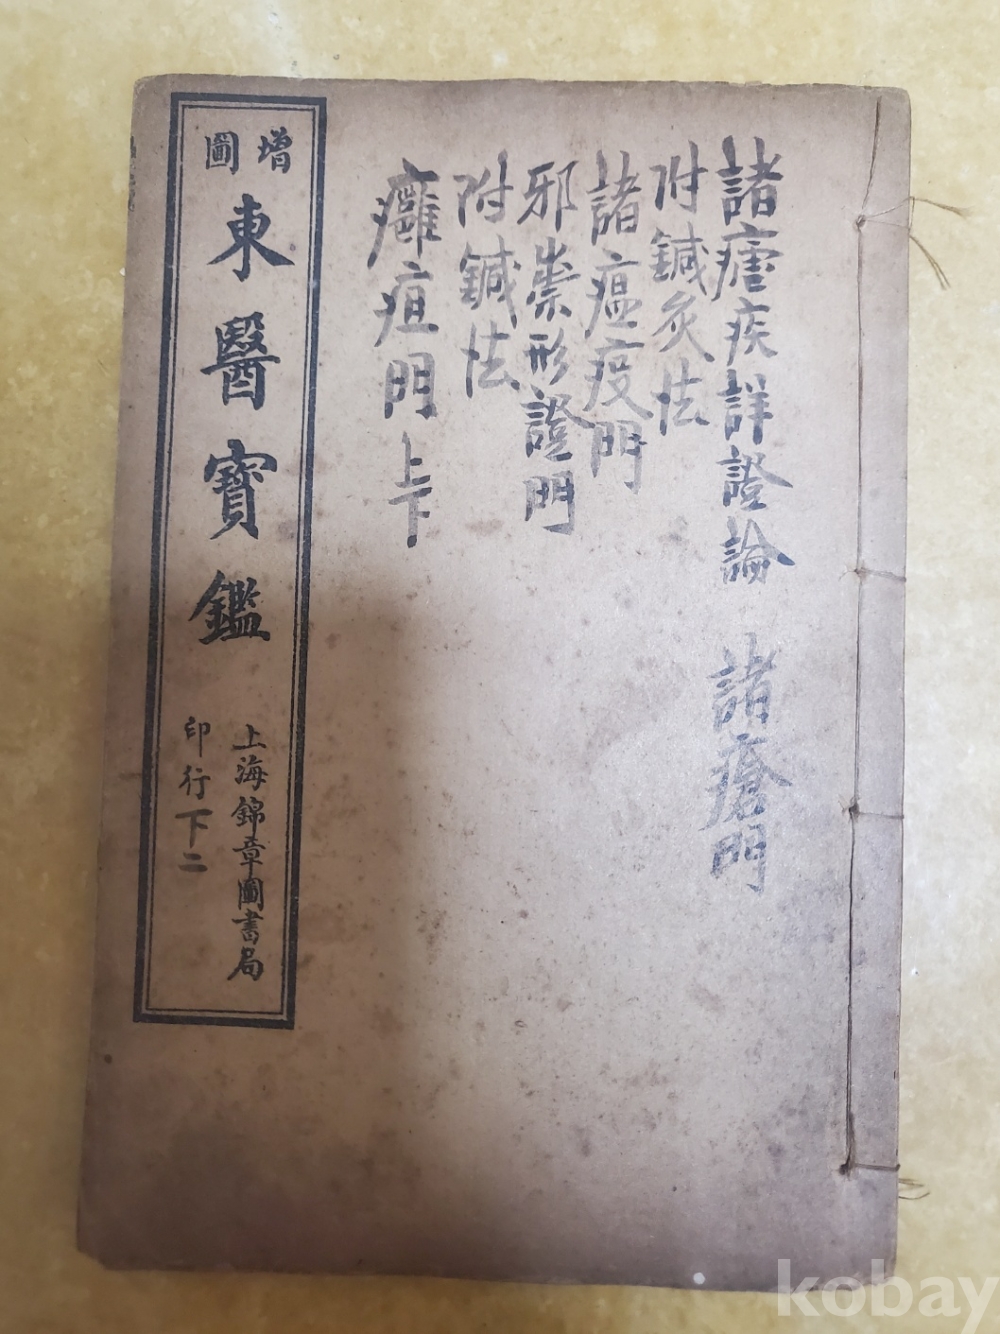 諸瘧疾詳證論 諸瘡門
附鍼灸法
諸瘟疫門
邪祟形證門
附鍼法
癰疽門上下
增圖
東醫寶鑑
上海錦章圖書局
印行下二
kobay